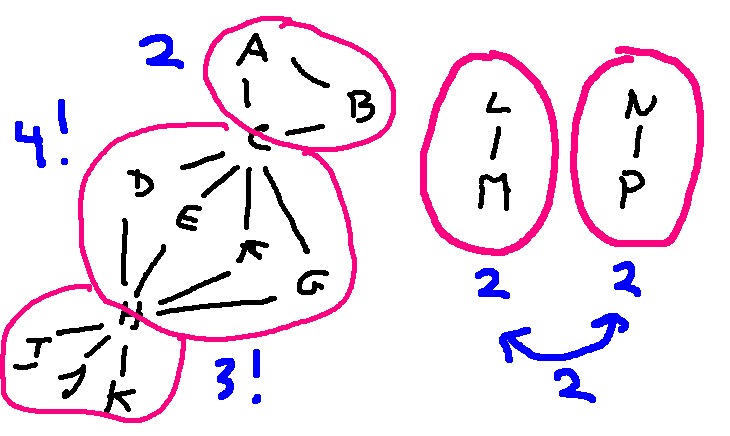 2
A
B
4!
C
D
E
F
G
H
I
J
K
3!
L
N
M
P
2
2
2